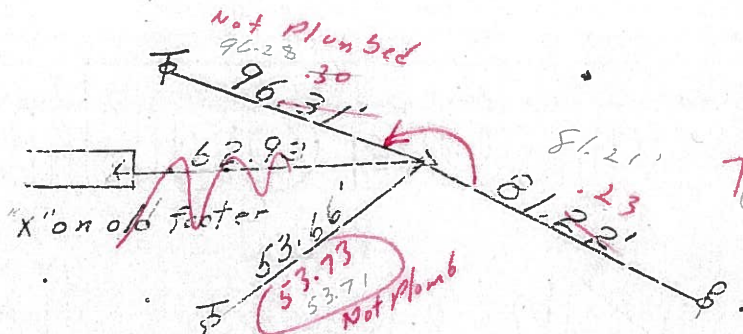 Not Plumbed
96.28
.30
96.31'
62.93
81.21'
.23
81.22'
"X" on old Footer
53.66'
53.73
53.71
Not Plomb